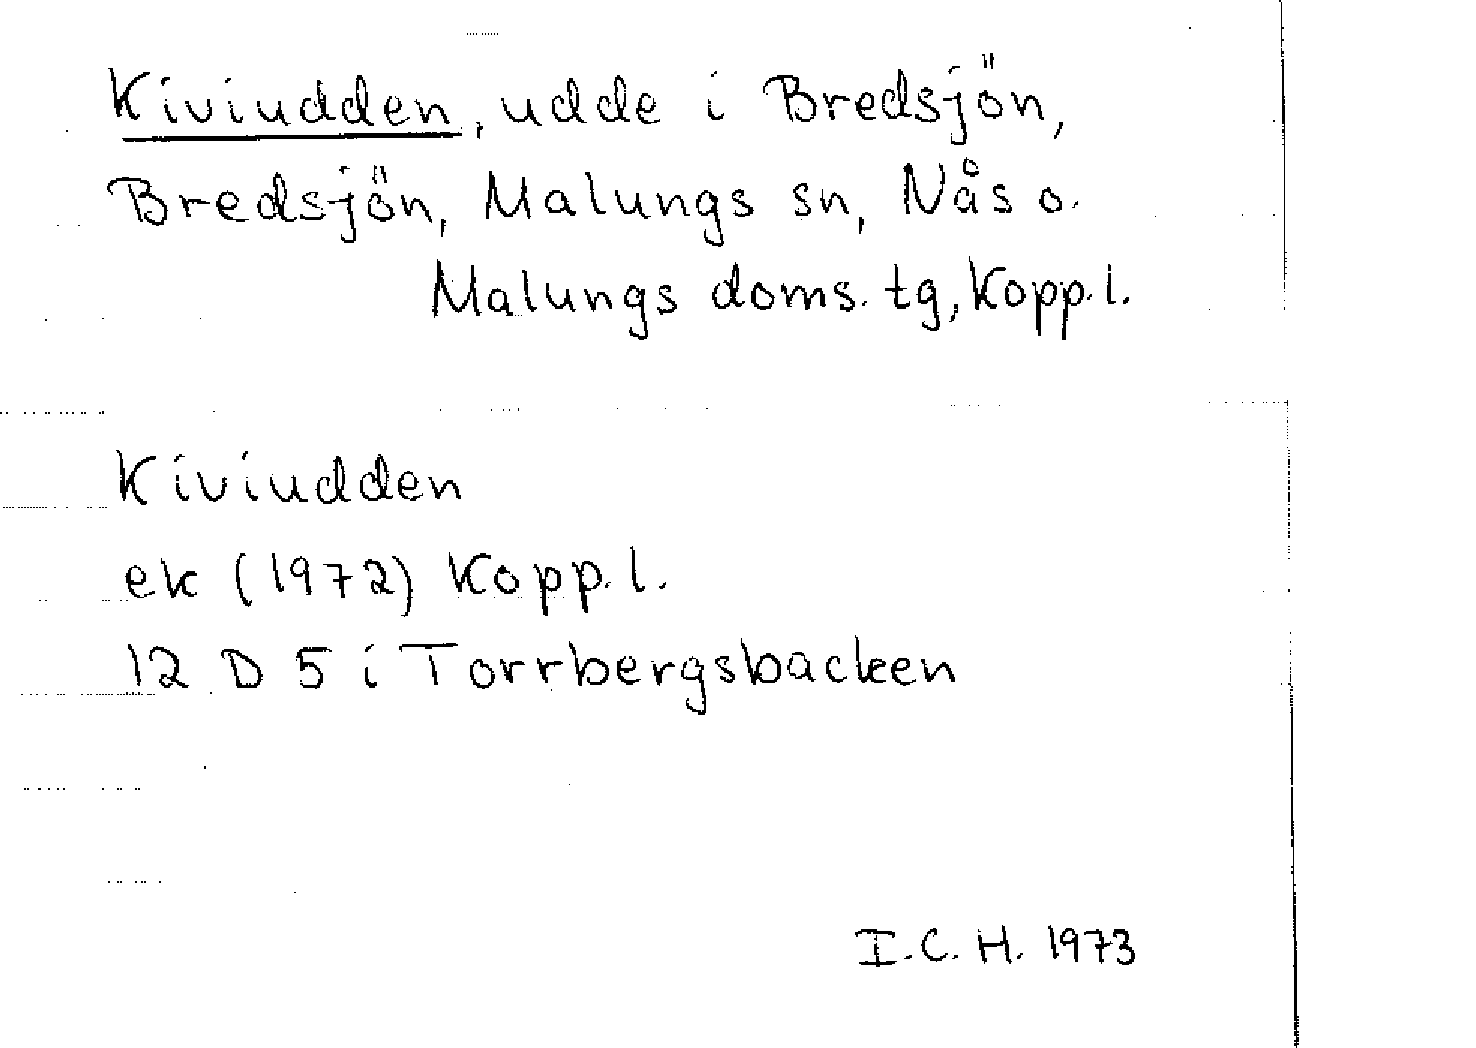 Kiviudden, udde i Bredsjön,
Bredsjön, Malungs sn, Nås o.
Malungs doms. tg, Kopp. l.
Kiviudden
ek (1972) Kopp. l.
12 D 5 i Torrbergsbacken
I.C.H. 1973